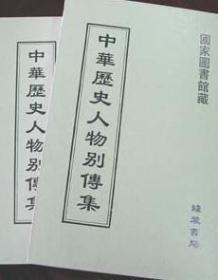 國家圖書館藏
中華歷史人物别傳集
綫裝書局
中華歷史人物别傳集